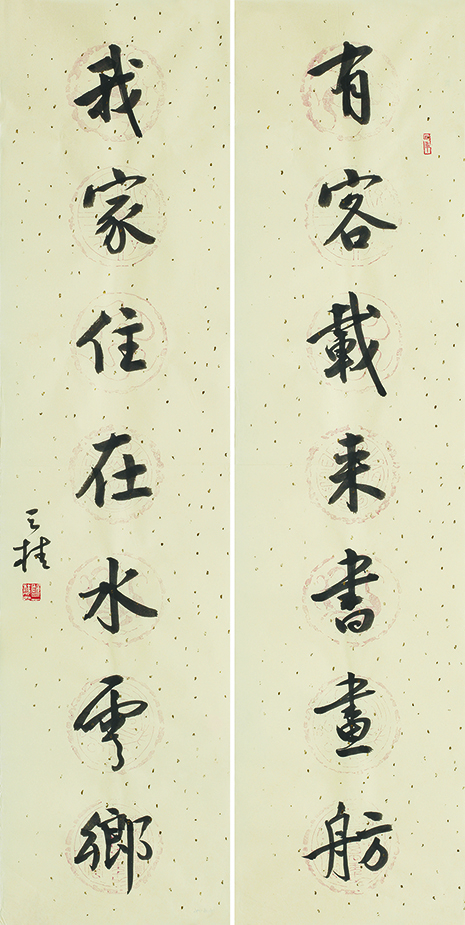 有客載来書畫舫
我家住在水雲鄉